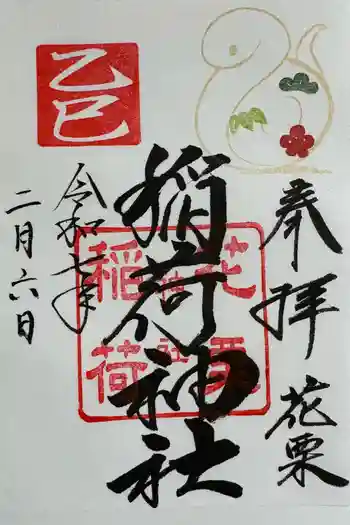 奉拝
花栗
稲荷神社
令和七年
二月六日
乙巳
花栗
稲荷
社